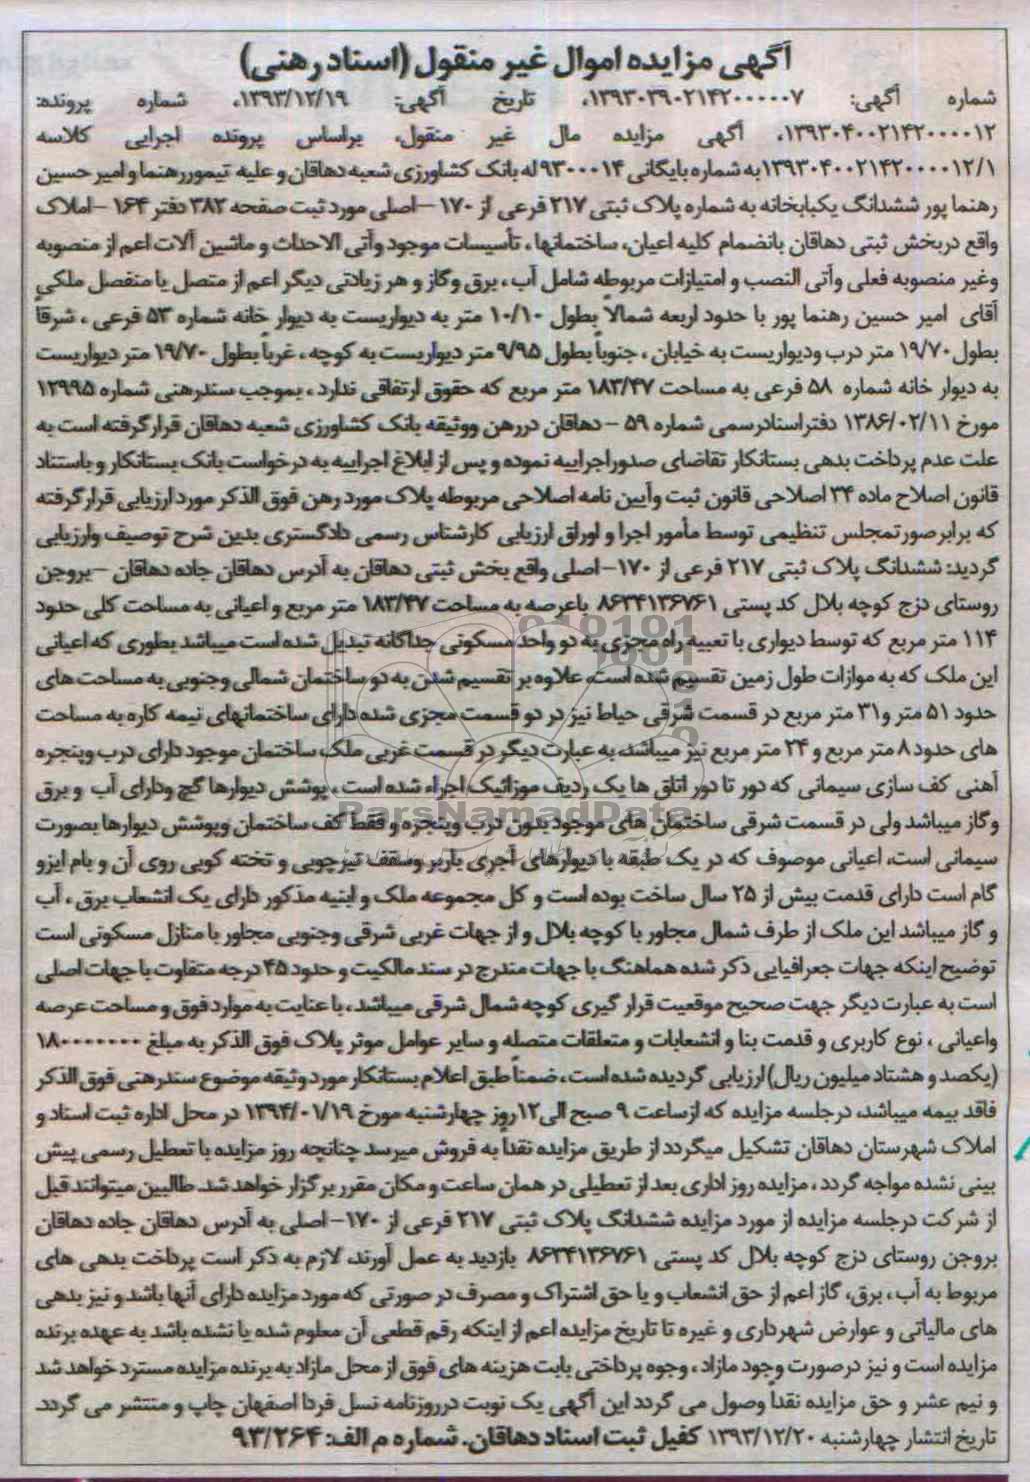 آگهی مزایده اموال غیر منقول (اسناد رهنی)
شماره آگهی: ۱۳۹۳۰۳۹۰۲۱۴۲۰۰۰۰۰۷، تاریخ آگهی: ۱۳۹۳/۱۲/۱۹، شماره پرونده:
۱۳۹۳۰۴۰۰۲۱۴۲۰۰۰۰۱۲، آگهی مزایده مال غیر منقول، براساس پرونده اجرایی کلاسه
۱۳۹۳۰۴۰۰۲۱۴۲۰۰۰۰۱۲/۱ به شماره بایگانی ۹۳۰۰۰۱۴ له بانک کشاورزی شعبه دهاقان و علیه تیمور رهنما و امیر حسین
رهنما پور ششدانگ یکبابخانه به شماره پلاک ثبتی ۲۱۷ فرعی از ۱۷۰ –اصلی مورد ثبت صفحه ۳۸۲ دفتر ۱۶۴ –املاک
واقع دربخش ثبتی دهاقان بانضمام کلیه اعیان، ساختمانها، تأسیسات موجود وآتی الاحداث و ماشین آلات اعم از منصوبه
وغیر منصوبه فعلی وآتی النصب و امتیازات مربوطه شامل آب، برق وگاز و هر زیادتی دیگر اعم از متصل یا منفصل ملکی
آقای امیر حسین رهنما پور با حدود اربعه شمالاً بطول ۱۰/۱۰ متر به دیواریست به دیوار خانه شماره ۵۳ فرعی، شرقاً
بطول ۱۹/۷۰ متر درب ودیواریست به خیابان، جنوباً بطول ۹/۹۵ متر دیواریست به کوچه، غرباً بطول ۱۹/۷۰ متر دیواریست
به دیوار خانه شماره ۵۸ فرعی به مساحت ۱۸۳/۴۷ متر مربع که حقوق ارتفاقی ندارد، بموجب سندرهنی شماره ۱۲۹۹۵
مورخ ۱۳۸۶/۰۲/۱۱ دفتراسنادرسمی شماره ۵۹ – دهاقان دررهن ووثیقه بانک کشاورزی شعبه دهاقان قرارگرفته است به
علت عدم پرداخت بدهی بستانکار تقاضای صدوراجراییه نموده و پس از ابلاغ اجراییه به درخواست بانک بستانکار و باستناد
قانون اصلاح ماده ۳۴ اصلاحی قانون ثبت وآیین نامه اصلاحی مربوطه پلاک مورد رهن فوق الذکر مورد ارزیابی قرارگرفته
که برابرصورتمجلس تنظیمی توسط مأمور اجرا و اوراق ارزیابی کارشناس رسمی دادگستری بدین شرح توصیف وارزیابی
گردید: ششدانگ پلاک ثبتی ۲۱۷ فرعی از ۱۷۰–اصلی واقع بخش ثبتی دهاقان به آدرس دهاقان جاده دهاقان –بروجن
روستای دزج کوچه بلال کد پستی ۸۶۳۴۱۳۶۷۶۱ باعرصه به مساحت ۱۸۳/۴۷ متر مربع و اعیانی به مساحت کلی حدود
۱۱۴ متر مربع که توسط دیواری با تعبیه راه مجزی به دو واحد مسکونی جداگانه تبدیل شده است میباشد بطوری که اعیانی
این ملک که به موازات طول زمین تقسیم شده است، علاوه بر تقسیم شدن به دو ساختمان شمالی وجنوبی به مساحت های
حدود ۵۱ متر و۳۱ متر مربع در قسمت شرقی حیاط نیز در دو قسمت مجزی شده دارای ساختمانهای نیمه کاره به مساحت
های حدود ۸ متر مربع و ۲۴ متر مربع نیز میباشد، به عبارت دیگر در قسمت غربی ملک ساختمان موجود دارای درب وپنجره
آهنی کف سازی سیمانی که دور تا دور اتاق ها یک ردیف موزائیک اجراء شده است، پوشش دیوارها گچ ودارای آب و برق
وگاز میباشد ولی در قسمت شرقی ساختمان های موجود بدون درب وپنجره و فقط کف ساختمان وپوشش دیوارها بصورت
سیمانی است، اعیانی موصوف که در یک طبقه با دیوارهای آجری باربر وسقف تیرچوبی و تخته کوبی روی آن و بام ایزو
گام است دارای قدمت بیش از ۲۵ سال ساخت بوده است و کل مجموعه ملک و ابنیه مذکور دارای یک انشعاب برق، آب
و گاز میباشد این ملک از طرف شمال مجاور با کوچه بلال و از جهات غربی شرقی وجنوبی مجاور با منازل مسکونی است
توضیح اینکه جهات جغرافیایی ذکر شده هماهنگ با جهات مندرج در سند مالکیت و حدود ۴۵ درجه متفاوت با جهات اصلی
است به عبارت دیگر جهت صحیح موقعیت قرار گیری کوچه شمال شرقی میباشد، با عنایت به موارد فوق و مساحت عرصه
واعیانی، نوع کاربری و قدمت بنا و انشعابات و متعلقات متصله و سایر عوامل موثر پلاک فوق الذکر به مبلغ ۱۸۰۰۰۰۰۰۰
(یکصد و هشتاد میلیون ریال) ارزیابی گردیده شده است، ضمناً طبق اعلام بستانکار مورد وثیقه موضوع سندرهنی فوق الذکر
فاقد بیمه میباشد، درجلسه مزایده که ازساعت ۹ صبح الی۱۲ روز چهارشنبه مورخ ۱۳۹۴/۰۱/۱۹ در محل اداره ثبت اسناد و
املاک شهرستان دهاقان تشکیل میگردد از طریق مزایده نقداً به فروش میرسد چنانچه روز مزایده با تعطیل رسمی پیش
بینی نشده مواجه گردد، مزایده روز اداری بعد از تعطیلی در همان ساعت و مکان مقرر برگزار خواهد شد. طالبین میتوانند قبل
از شرکت درجلسه مزایده از مورد مزایده ششدانگ پلاک ثبتی ۲۱۷ فرعی از ۱۷۰– اصلی به آدرس دهاقان جاده دهاقان
بروجن روستای دزج کوچه بلال کد پستی ۸۶۳۴۱۳۶۷۶۱ بازدید به عمل آورند، لازم به ذکر است پرداخت بدهی های
مربوط به آب، برق، گاز اعم از حق انشعاب و یا حق اشتراک و مصرف در صورتی که مورد مزایده دارای آنها باشد و نیز بدهی
های مالیاتی و عوارض شهرداری و غیره تا تاریخ مزایده اعم از اینکه رقم قطعی آن معلوم شده یا نشده باشد به عهده برنده
مزایده است و نیز درصورت وجود مازاد، وجوه پرداختی بابت هزینه های فوق از محل مازاد به برنده مزایده مسترد خواهد شد
و نیم عشر و حق مزایده نقداً وصول می گردد این آگهی یک نوبت درروزنامه نسل فردا اصفهان چاپ و منتشر می گردد.
تاریخ انتشار چهارشنبه ۱۳۹۳/۱۲/۲۰ کفیل ثبت اسناد دهاقان. شماره م الف: ۹۳/۲۶۴
ParsNamadData